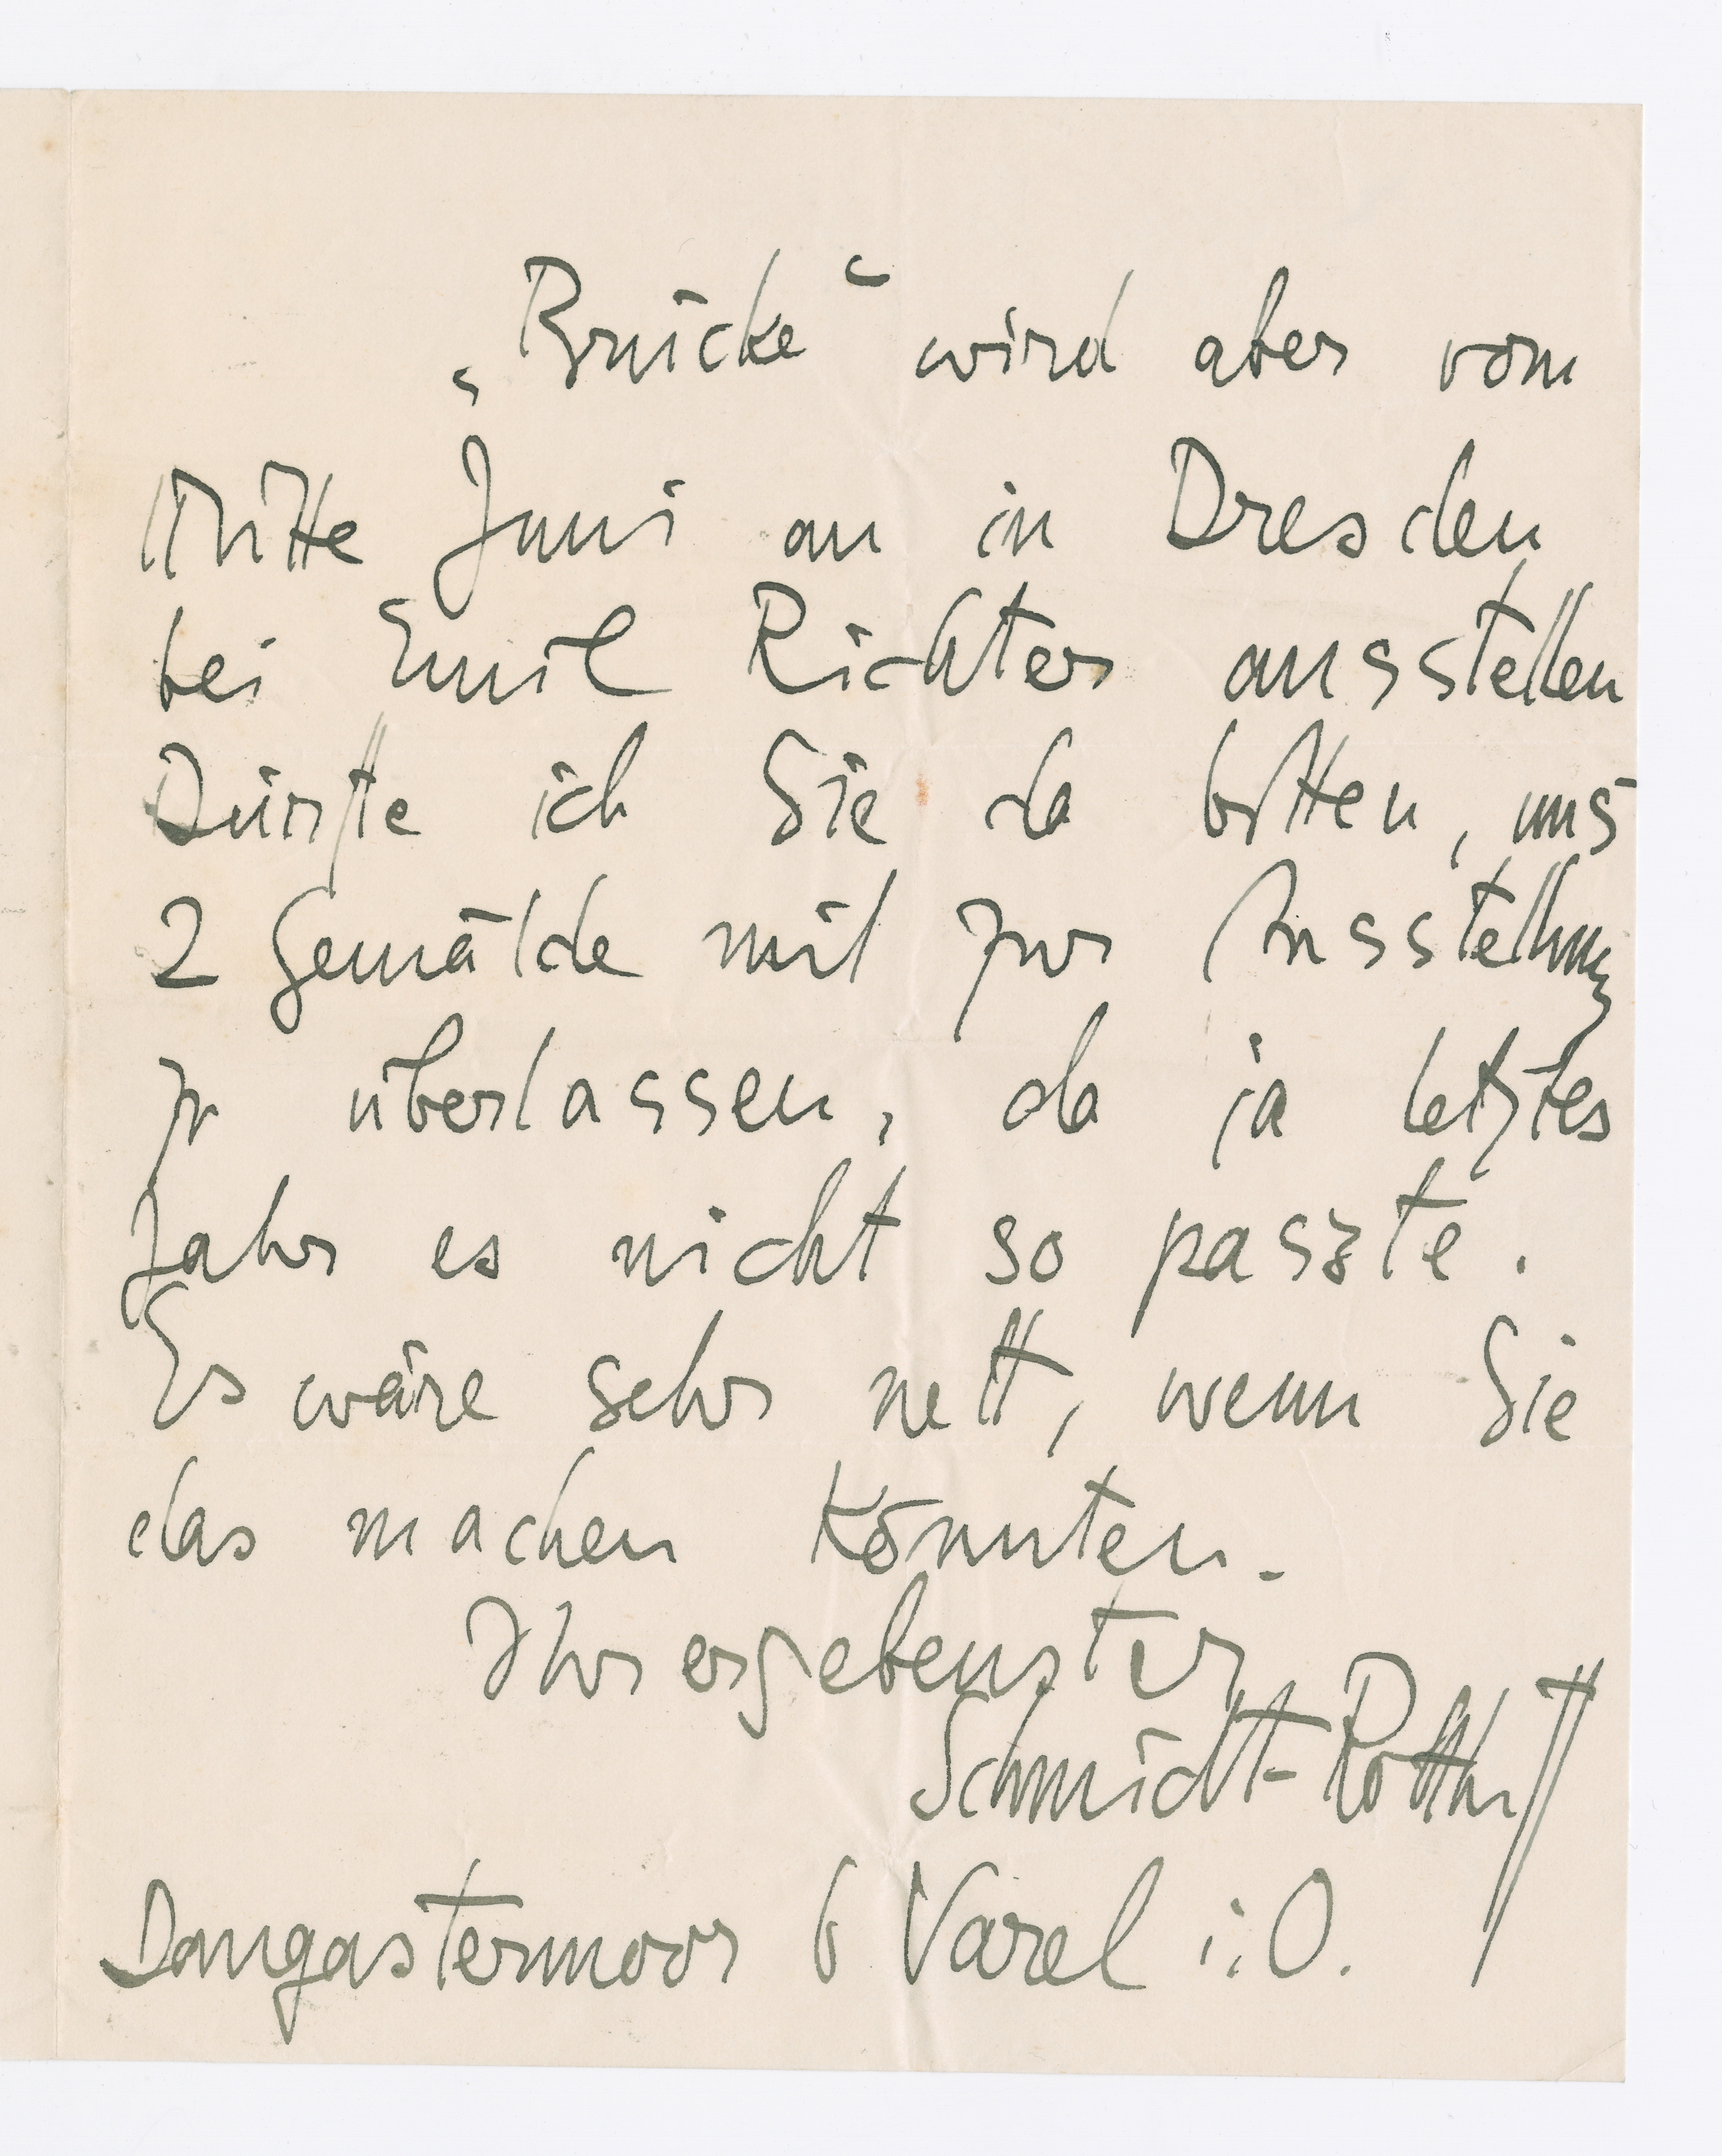 „Brücke“ wird aber vom
Mitte Juni an in Dresden
bei Emil Richter ausstellen
Dürfte ich Sie da bitten, uns
2 Gemälde mit zur Ausstellung
zu überlassen, da ja letztes
Jahr es nicht so paszte.
Es wäre sehr nett, wenn Sie
das machen könnten.
Ihr ergebenster
Schmidt-Rottluff
Dangastermoor b Varel i. O.